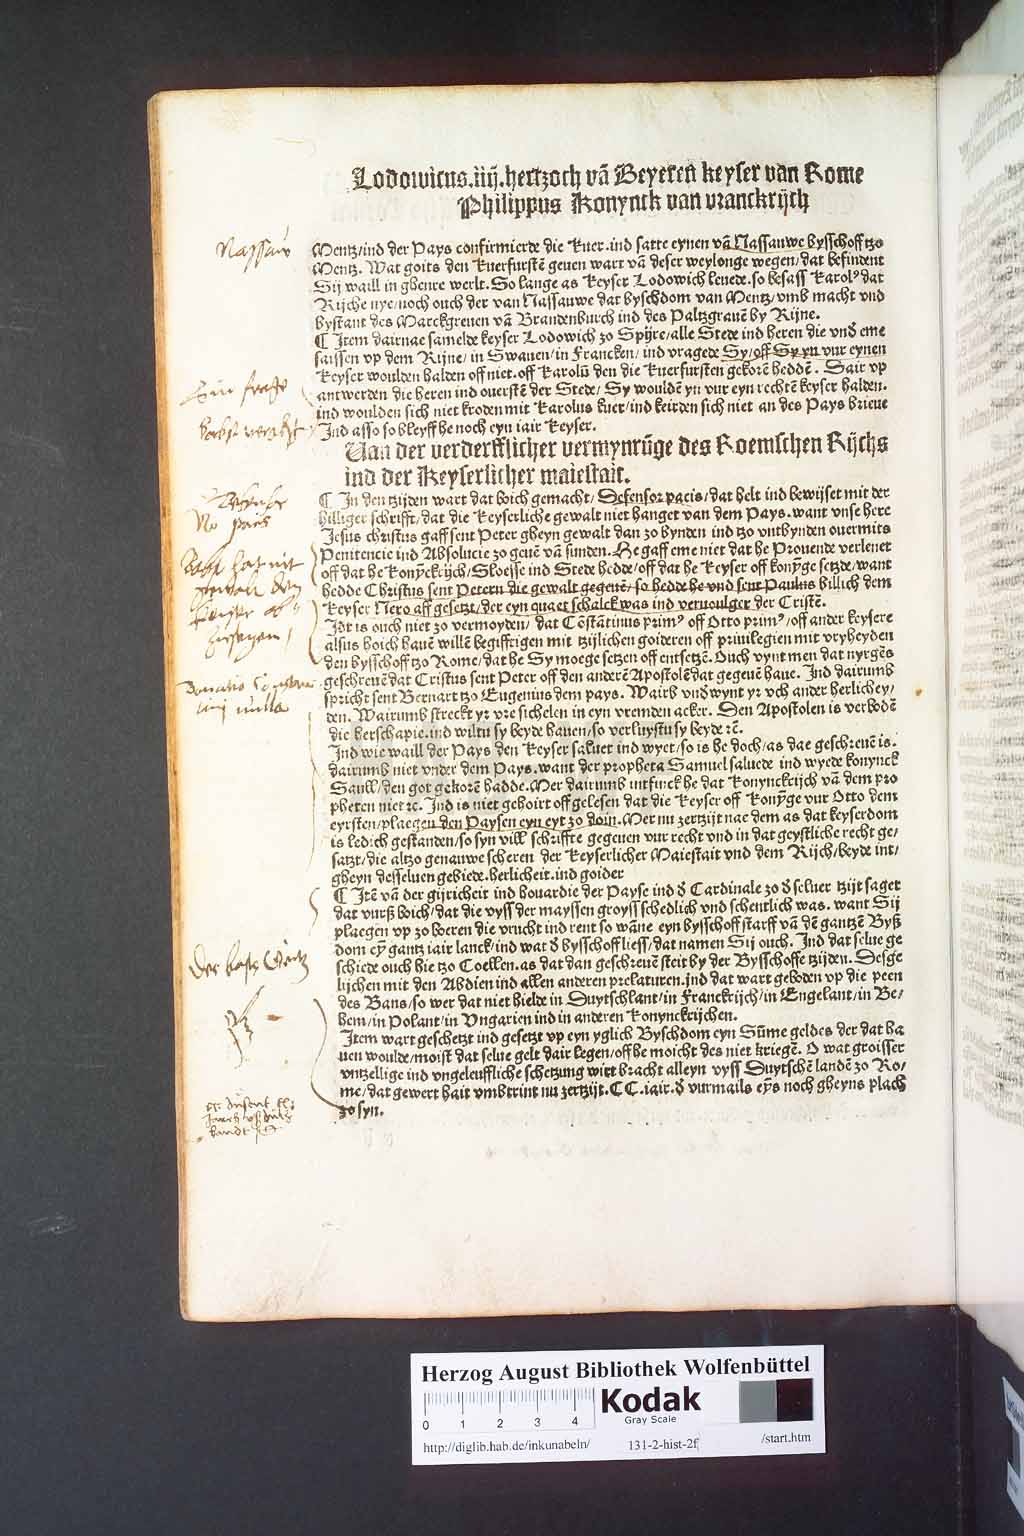 Lodowicus.iiij.hertzoch vā Beyeren keyser van Rome
Philippus Konynck van vranckrijch
Nassaw
Mentz/ind der Pays confirmierde die kuer.ind satte eynen vā Nassauwe bysschoff tzo
Mentz. Wat goits den kuerfurstē geuen wart vā deser weylonge wegen/dat befindent
Sij waill in ghenre werlt. So lange as keyser Lodowich leuede.so besass Karolꝰ dat
Rijche nye/noch ouch der van Nassauwe dat byschdom van Mentz/vmb macht vnd
bystant des Marckgreuen vā Brandenburch ind des Paltzgrauē by Rijne.
¶ Item dairnae samelde keyser Lodowich zo Spijre/alle Stede ind heren die vnđ eme
saissen vp dem Rijne/in Swauen/in Francken/ind vragede Sy/off Sy yn vur eynen
keyser woulden halden off niet.off Karolū den die kuerfursten gekorē heddē. Dair vp
antwerden die heren ind ouerstē der Stede/Sy wouldē yn vur eyn rechtē keyser halden.
ind woulden sich niet kroden mit Karolus kuer/ind keirden sich niet an des Pays brieue
Ind asso so bleyff he noch eyn iair keyser.
Van der verderfflicher vermynrūge des Roemschen Rijchs
ind der Keyserlicher maiestait.
¶ In den tzijden wart dat boich gemacht/Defensor pacis/dat helt ind bewijset mit der
hilliger schrifft/dat die keyserliche gewalt niet hanget van dem Pays.want vnse here
Jesus christus gaff sent Peter gheyn gewalt dan zo bynden ind tzo vntbynden ouermits
Penitencie ind Absolucie zo geuē vā sunden. He gaff eme niet dat he Prouende verlenet
off dat he Konynckrijch/Sloesse ind Stede hedde/off dat he keyser off konynge setzde/want
hedde Christus sent Petern die gewalt gegeuē/so hedde he vnd sent Paulus billich dem
keyser Nero aff gesetzt/der eyn quaet schalck was ind veruoulger der Cristē.
Idt is ouch niet zo vermoyden/dat Cōstātinus primꝰ off Otto primꝰ/off ander keysere
alsus hoich hauē willē begifftigen mit tzijtlichen goideren off priuilegien mit vryheyden
den bysschoff tzo Rome/dat he Sy moege setzen off entsetzē. Ouch vynt men dat nyrgēs
geschreuē dat Cristus sent Peter off den anderē Apostolē dat gegeuē haue. Ind dairumb
spricht sent Bernart tzo Eugenius dem pays. Wairb vnd wynt yr vch ander herlichey/
den. Wairumb streckt yr vre sichelen in eyn vremden acker. Den Apostolen is verbodē
die herschapie.ind wiltu sy beyde hauen/so verluystu sy beyde ꝛc̄.
Ind wie waill der Pays den keyser saluet ind wyet/so is he doch/as dae geschreuē is.
dairumb niet vnder dem Pays.want der propheta Samuel saluede ind wyede konynck
Saull/den got gekorē hadde.Mer dairumb vntfinck he dat Konynckrijch vā dem pro
pheten niet ꝛc. Ind is niet gehoirt off gelesen dat die keyser off Konynge vur Otto dem
eyrsten/plaegen den Paysen eyn eyt zo doin.Mer nu zertzijt nae dem as dat keyserdom
is ledich gestanden/so syn vill schriffte gegeuen vur recht vnd in dat geystliche recht ge/
satzt/die altzo genauwe scheren der keyserlicher Maiestait vnd dem Rijch/beyde int/
gheyn desseluen gebiede.herlicheit.ind goider
¶ Itē vā der gijricheit ind houardie der Payse ind đ Cardinale zo đ seluer tzijt saget
dat vurß boich/dat die vyss der mayssen groyss schedlich vnd schentlich was. want Sij
plaegen vp zo boeren die vrucht ind rent so wāne eyn bysschoff starff vā dē gantzē Byß
dom eȳ gantz iair lanck/ind wat đ bysschoff liess/dat namen Sij ouch. Ind dat selue ge
schiede ouch hie tzo Coellen.as dat dan geschreuē steit by der Bysschoffe tzijden. Desge
lijchen mit den Abdien ind allen anderen prelaturen.Ind dat wart geboden vp die peen
des Bans/so wer dat niet hielde in Duytschlant/in Franckrijch/in Engelant/in Be/
hem/in Polant/in Vngarien ind in anderen Konynckrijchen.
Item wart geschetzt ind gesetzt vp eyn yglich Byschdom eyn Sūme geldes der dat ha
uen woulde/moist dat selue gelt dair legen/off he moicht des niet kriegē. O wat groisser
vntzellige ind vngeleuffliche schetzung wirt bracht alleyn vyss Duytschē landē zo Ro/
me/dat gewert hait vmbtrint nu zertzijt.CC.iair.đ vurmails eȳs noch gheyns plach
zo syn.
Herzog August Bibliothek Wolfenbüttel
0 1 2 3 4
Kodak
Gray Scale
http://diglib.hab.de/inkunabeln/ 131-2-hist-2f /start.htm